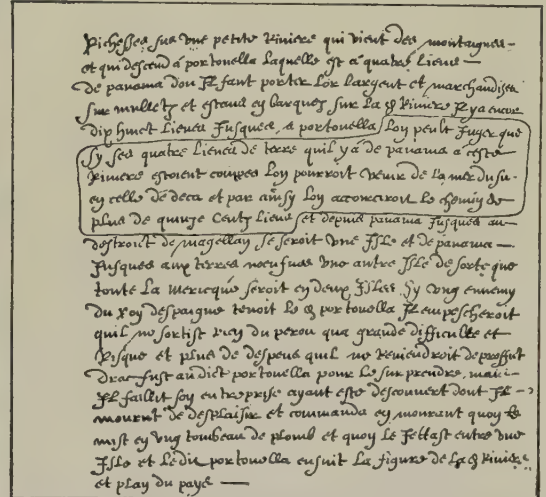 Richesses sur une petite Riviere qui vient des montaignes
et qui descend a portouella laquelle est a quatre lieues
de panama dou Il fault porter lor largent et marchandises
sur mulletz et estans en barques sur lad Riviere Il y a encor
dix huict lieues Jusques a portouella lon peult Juger que
sy ses quatre lieues de terre quil y a de panama a ceste
Riviere estoient coupees lon pourroit venir de la mer du su
en celle de deca et par ainsy lon acourciroit le chemin de
plus de quinze centz lieues et depuis panama Jusques au
destroict de magellan se seroit une Isle et de panama
Jusques aux terres noeufues une autre Isle de sorte que
toutte La mericque seroit en deux Isles Sy ung ennemy
du Roy despaigne tenoit led portouella Il empescheroit
quil ne sortist rien du perou qua grande difficulte et
Risque et plus de despens quil ne Reviendroit de proffit
drac fust audict portouella pour le surprendre mais
Il faillit son entreprise ayant este descouvert dont Il
mourut de desplaisir et commanda en mourant quon le
mist en ung tombeau de plomb et quon le Jettast entre une
Isle et ledit portouella ensuit la figure de lad Riviere
et plan du pays